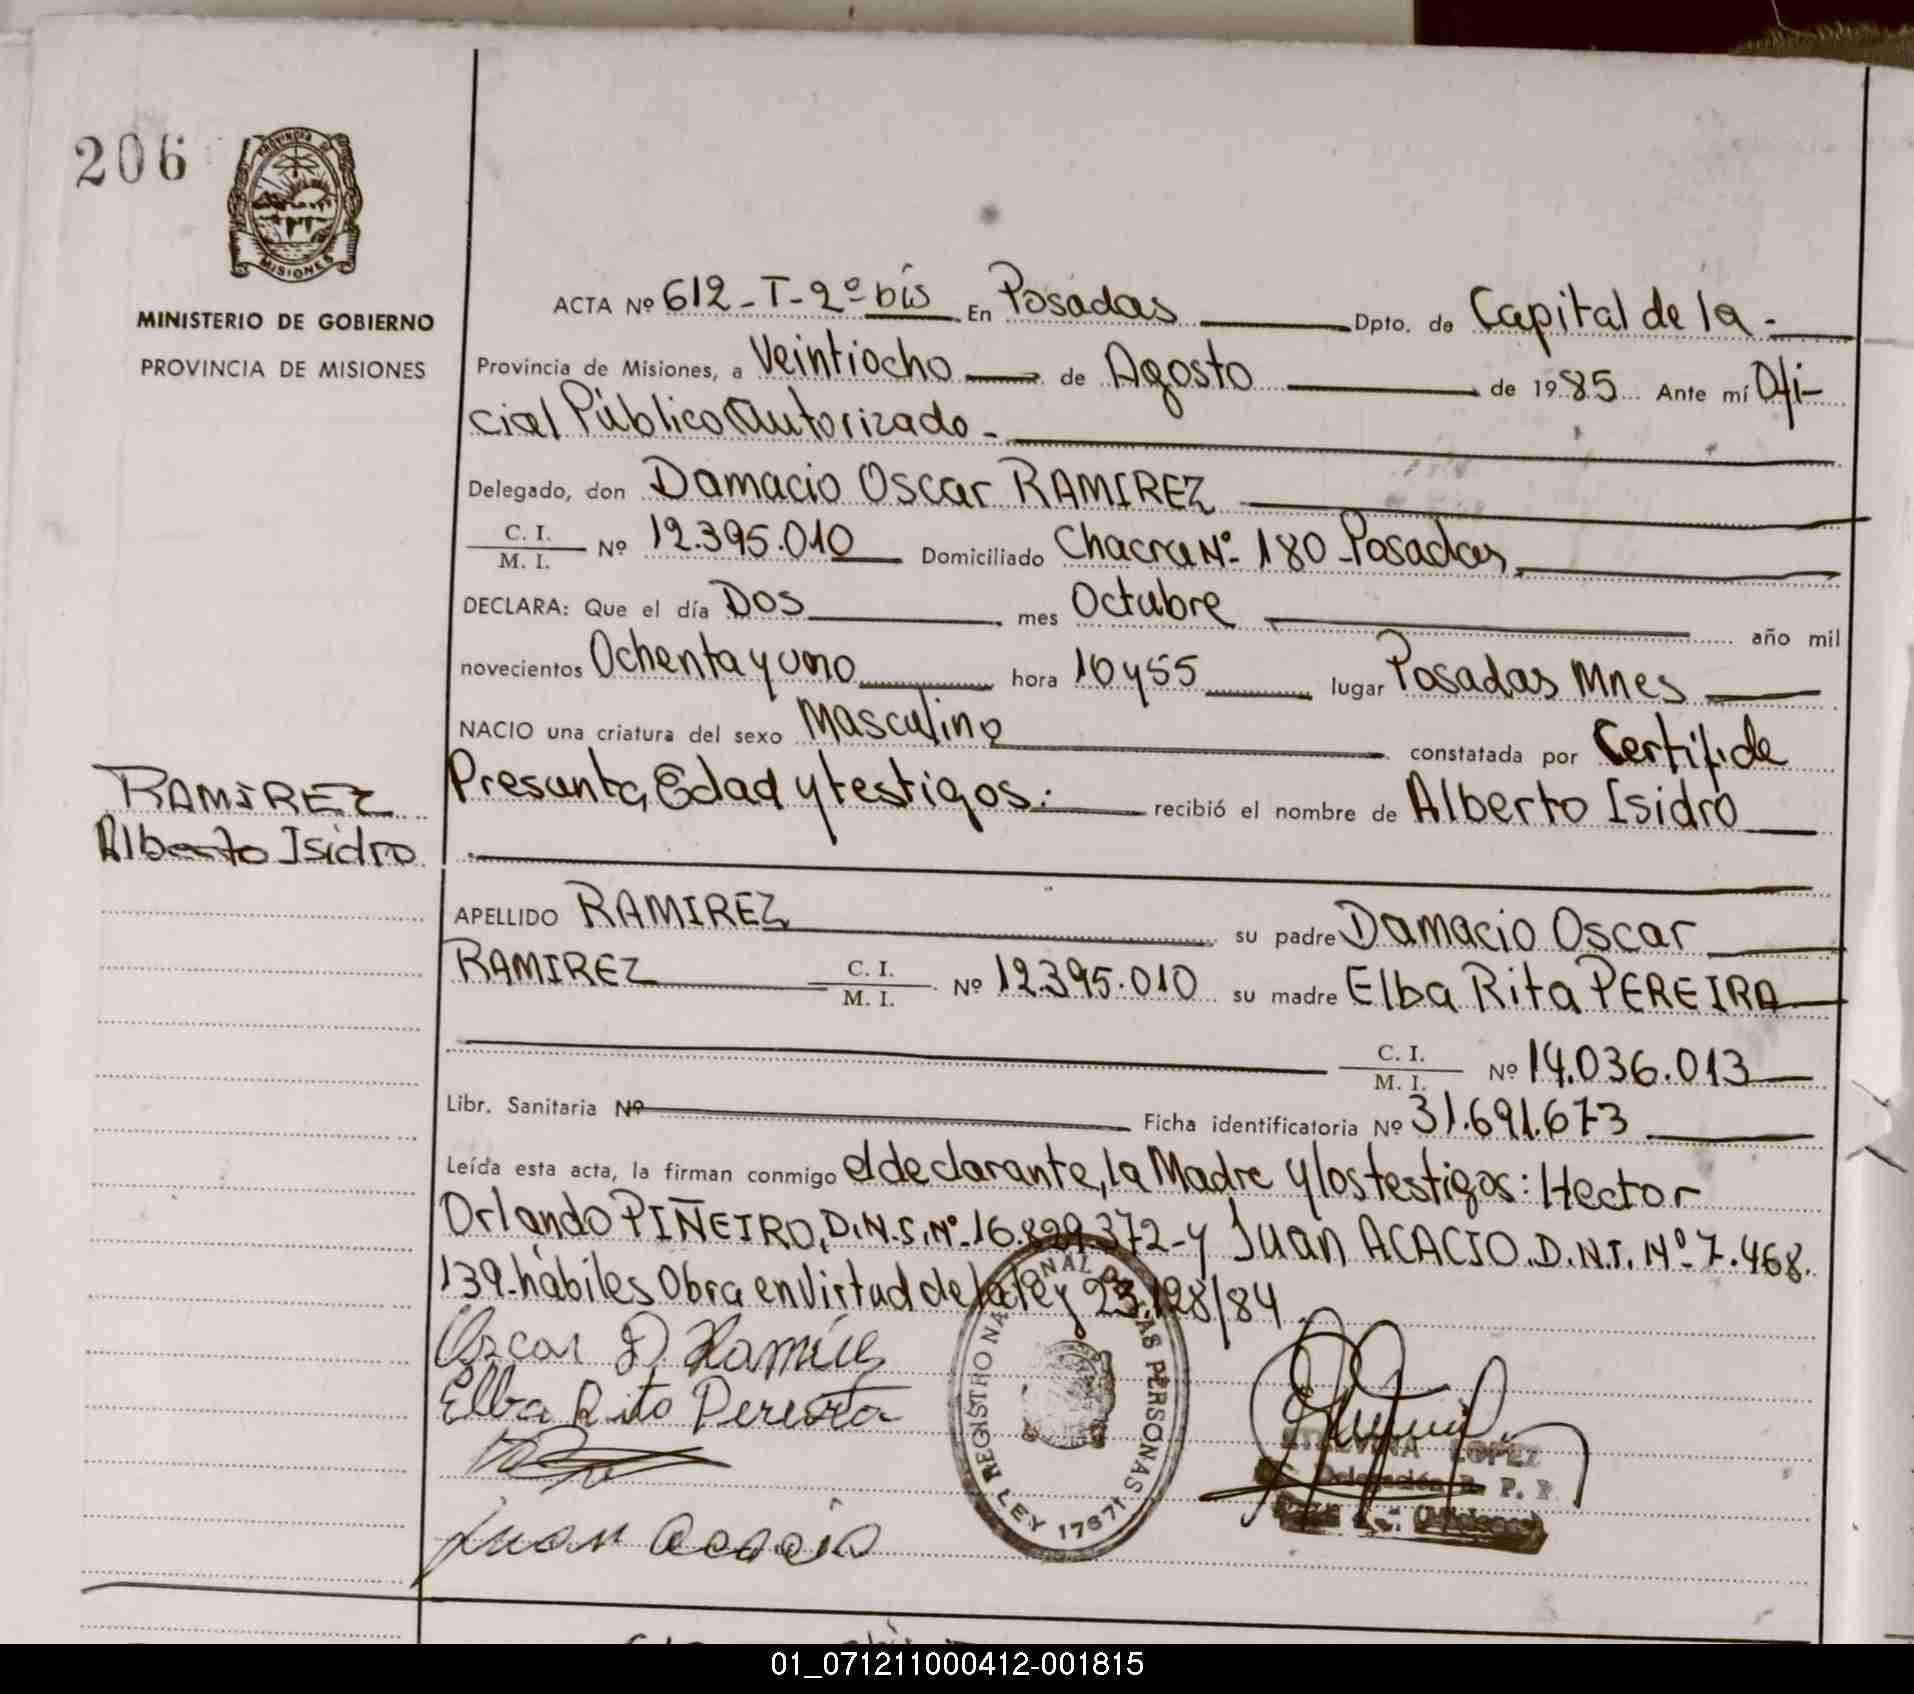 206
PROVINCIA DE
MISIONES
MINISTERIO DE GOBIERNO
PROVINCIA DE MISIONES
ACTA Nº 612-T-2º bis En Posadas Dpto. de Capital de la -
Provincia de Misiones, a Veintiocho de Agosto de 1985 Ante mí Ofi-
cial Público Autorizado -
Delegado, don Damacio Oscar RAMIREZ
C. I.
M. I. Nº 12.395.010 Domiciliado Chacra Nº 180 - Posadas
DECLARA: Que el día Dos mes Octubre año mil
novecientos Ochenta y uno hora 10 y 55 lugar Posadas Mnes
NACIO una criatura del sexo Masculino constatada por Certif. de
Presunta Edad y testigos: recibió el nombre de Alberto Isidro
RAMIREZ
Alberto Isidro
APELLIDO RAMIREZ su padre Damacio Oscar
RAMIREZ C. I.
M. I. Nº 12.395.010 su madre Elba Rita PEREIRA
C. I.
M. I. Nº 14.036.013
Libr. Sanitaria Nº Ficha identificatoria Nº 31.691.673
Leída esta acta, la firman conmigo el declarante, la Madre y los testigos: Hector
Orlando PIÑEIRO, D.N.I. Nº 16.829.372 - y Juan ACACIO. D.N.I. Nº 7.468.
139 - hábiles Obra en Virtud de la ley 23.128/84
Oscar D Ramírez
Elba Rita Pereira
Juan Acacio
REGISTRO NACIONAL DE LAS PERSONAS
LEY 17671
LOPEZ
Delegación R. P. P.
01_071211000412-001815